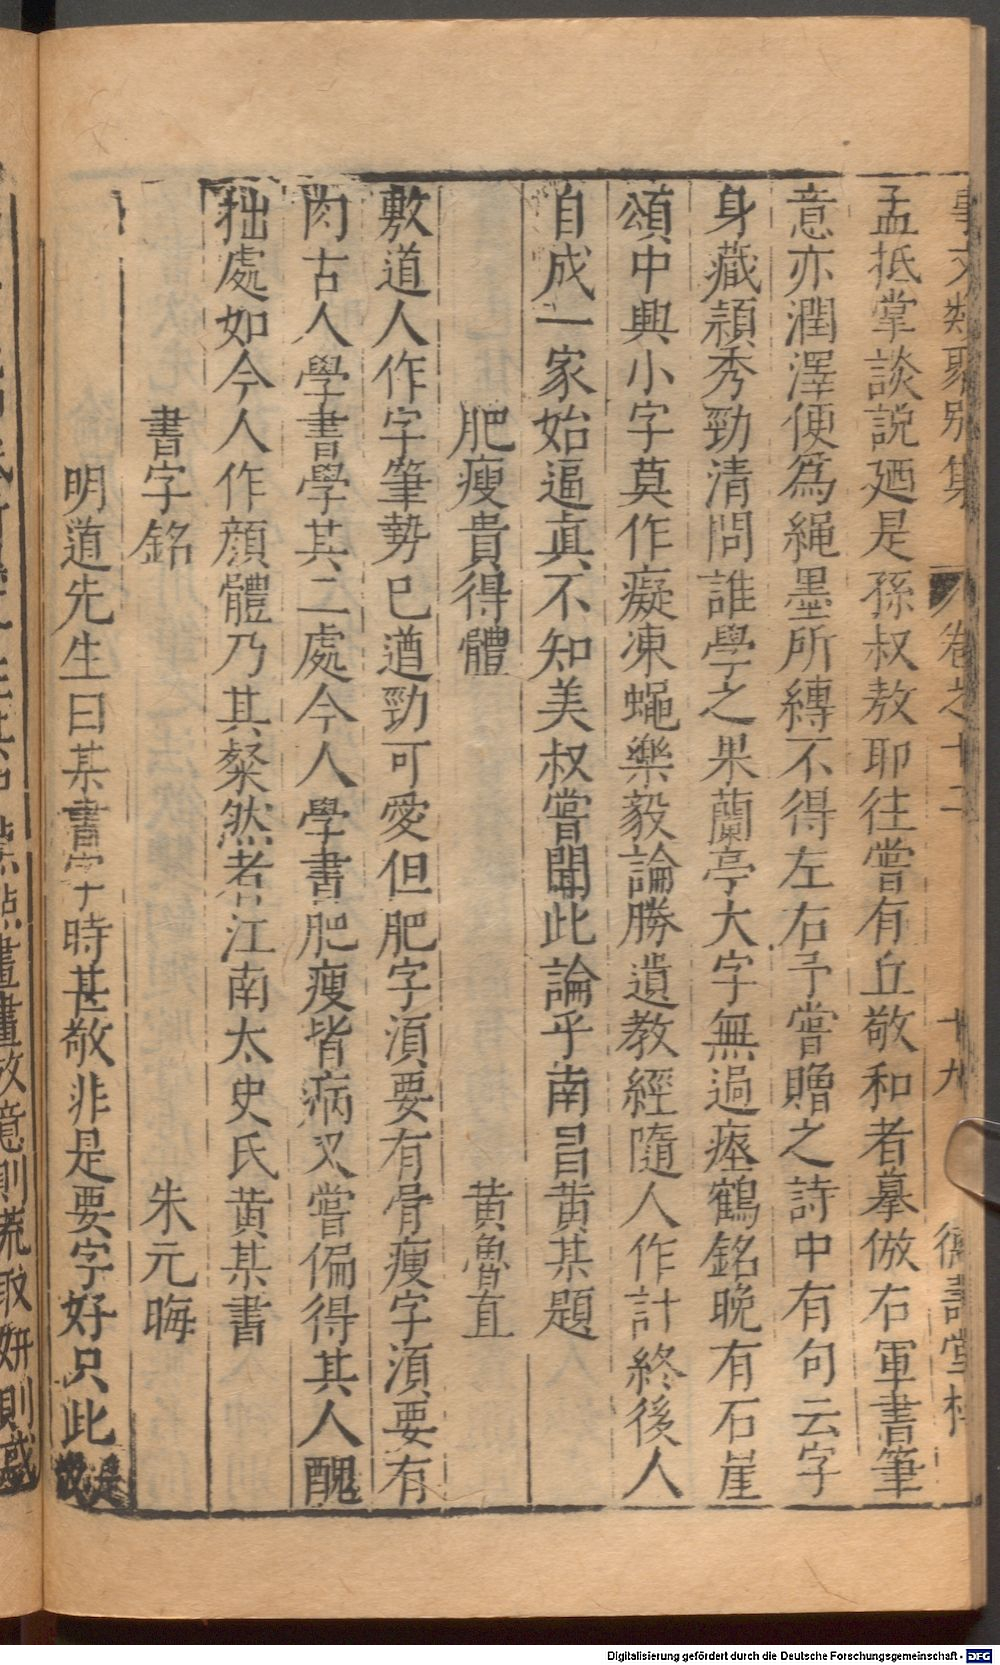 事文類聚別集 卷之十二 廿九 德壽堂梓
孟抵掌談説廼是孫叔敖耶往嘗有丘敬和者摹倣右軍書筆
意亦潤澤便為繩墨所縳不得左右予嘗贈之詩中有句云字
身藏頴秀勁清問誰學之果蘭亭大字無過瘞鶴銘晚有石崖
頌中興小字莫作癡凍蠅樂毅論勝遺教經隨人作計終後人
自成一家始逼真不知美叔嘗聞此論乎南昌黄某題
肥瘦貴得體 黄魯直
敷道人作字筆勢已遒勁可愛但肥字湏要有骨瘦字湏要有
肉古人學書學其二處今人學書肥瘦皆病又嘗偏得其人醜
拙處如今人作顔體乃其粲然者江南太史氏黄某書
書字銘 朱元晦
明道先生曰某書字時甚敬非是要字好只此是敬
點點畫畫放意則荒取妍則惑
Digitalisierung gefördert durch die Deutsche Forschungsgemeinschaft - DFG